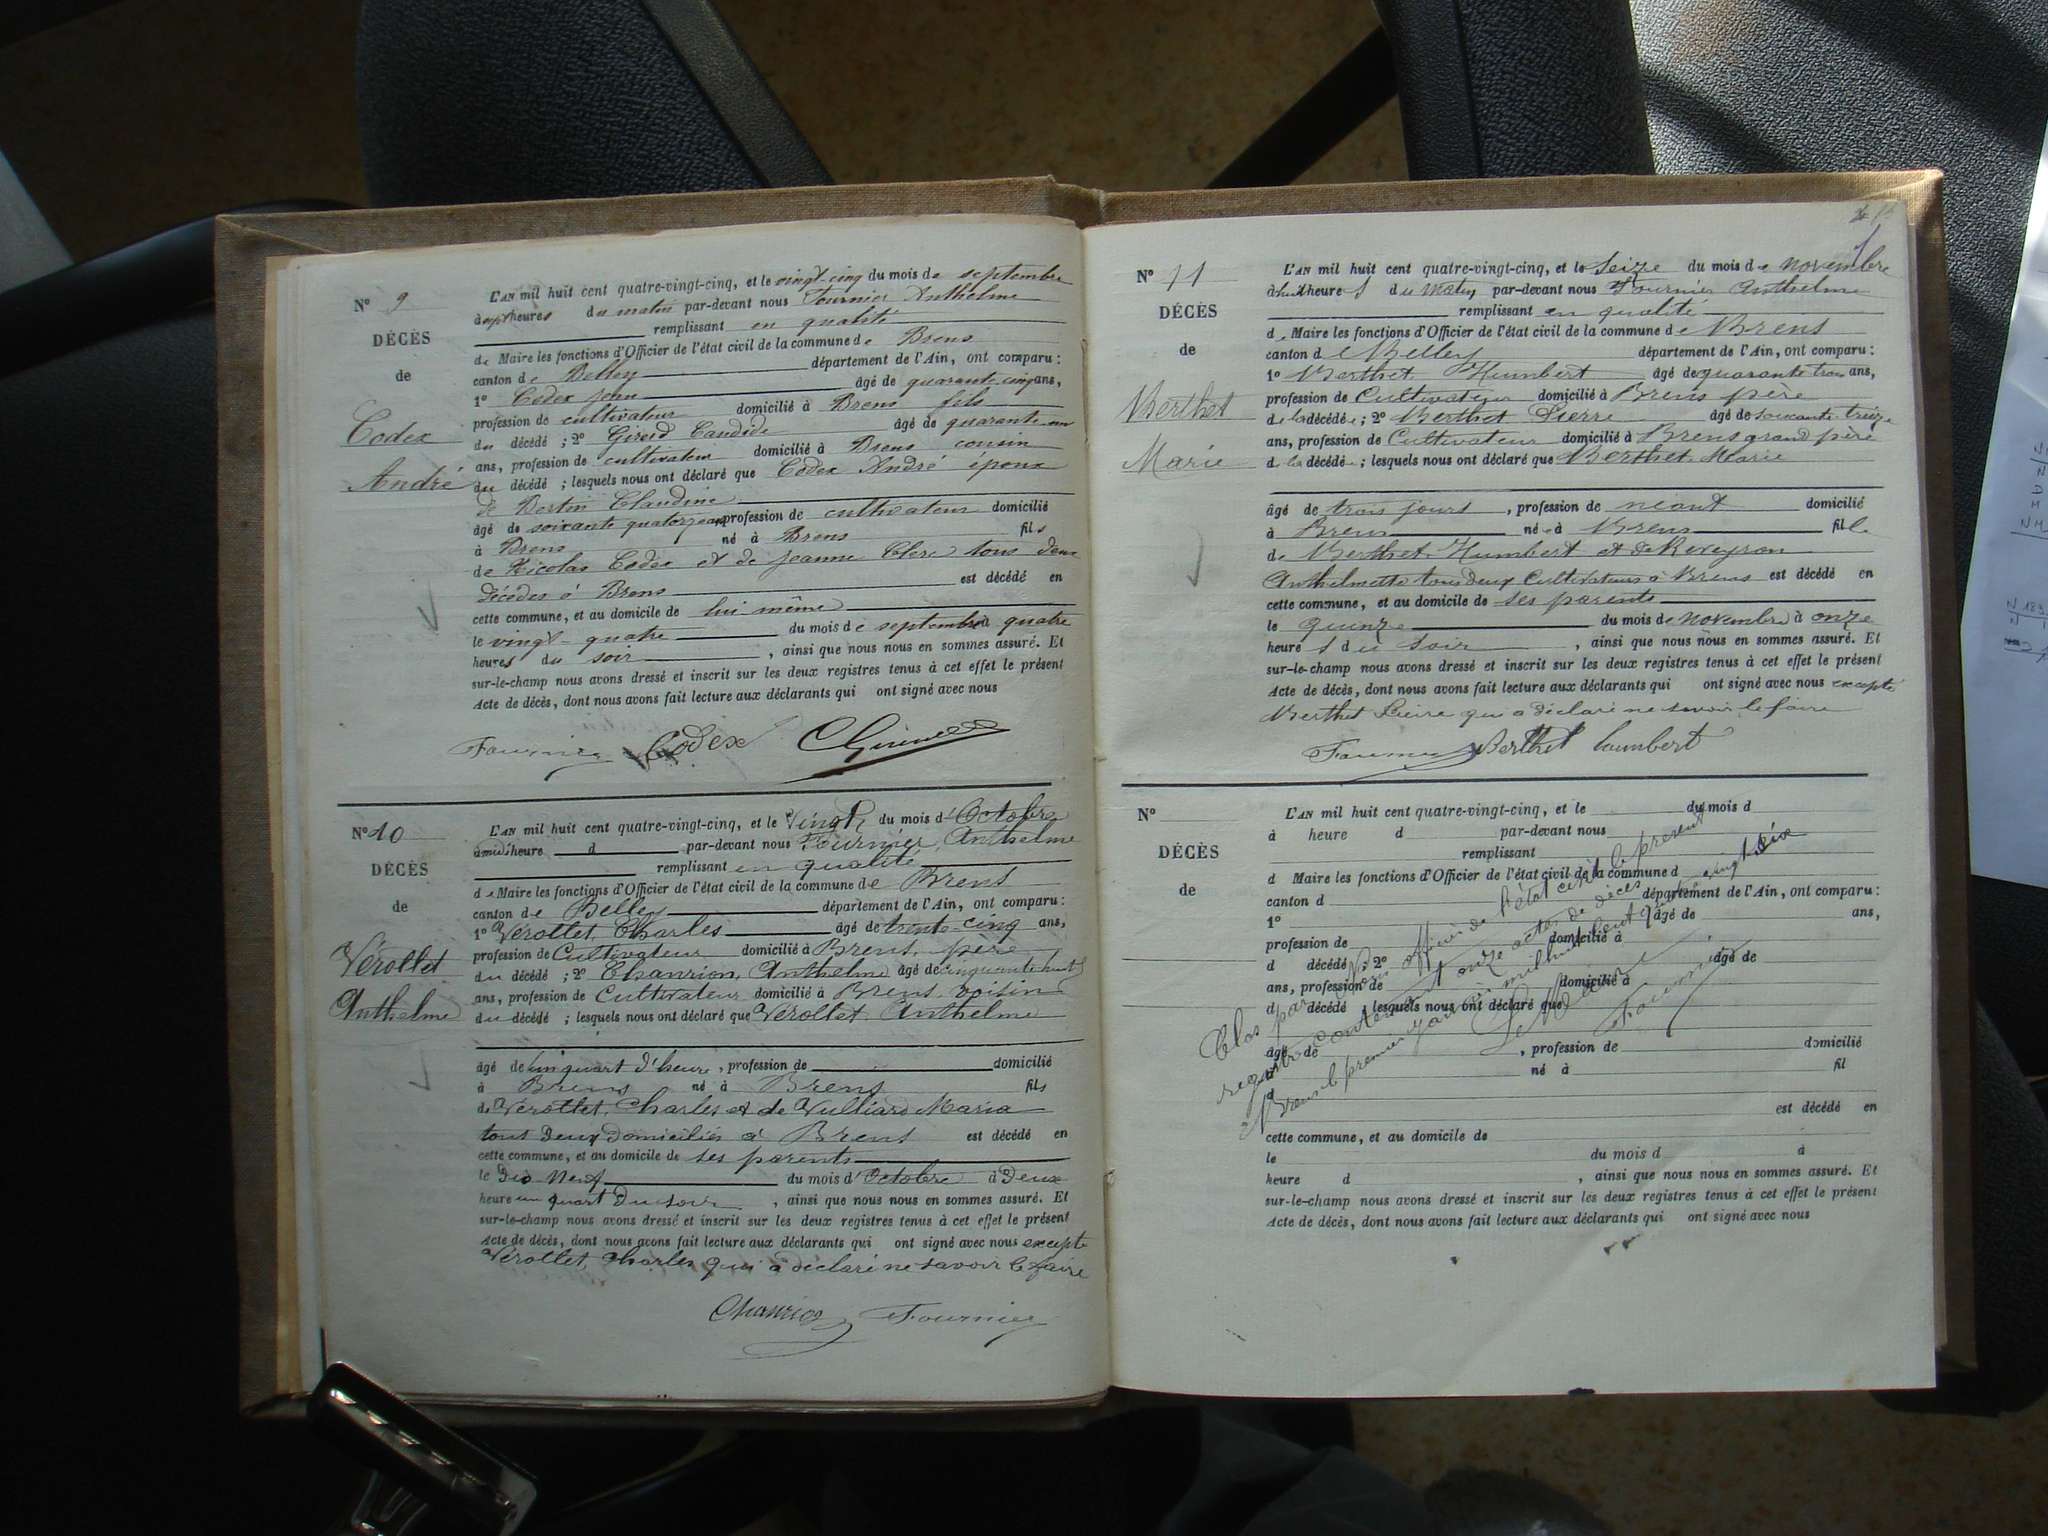 N° 9
DÉCÈS
de
Codex
André
L'AN mil huit cent quatre-vingt-cinq, et le vingt-cinq du mois de septembre
à sept heures du matin par-devant nous Fournier Anthelme
remplissant en qualité
de Maire les fonctions d'Officier de l'état civil de la commune de Brens
canton de Belley département de l'Ain, ont comparu :
1° Codex jean âgé de quarante-cinq ans,
profession de cultivateur domicilié à Brens fils
du décédé ; 2° Candide âgé de quarante-un
ans, profession de cultivateur domicilié à Brens cousin
du décédé ; lesquels nous ont déclaré que Codex André époux
de Bertin Claudine
âgé de soixante quatorze ans profession de cultivateur domicilié
à Brens né à Brens fils
de Nicolas Codex et de jeanne Clerc tous deux
décédés à Brens est décédé en
cette commune, et au domicile de lui même
le vingt-quatre du mois de septembre à quatre
heures du soir, ainsi que nous nous en sommes assuré. Et
sur-le-champ nous avons dressé et inscrit sur les deux registres tenus à cet effet le présent
Acte de décès, dont nous avons fait lecture aux déclarants qui ont signé avec nous
Fournier Codex
N° 10
DÉCÈS
de
Vérollet
Anthelme
L'AN mil huit cent quatre-vingt-cinq, et le vingt du mois d'Octobre
à midi heure d par-devant nous Fournier Anthelme
remplissant en qualité
de Maire les fonctions d'Officier de l'état civil de la commune de Brens
canton de Belley département de l'Ain, ont comparu :
1° Vérollet, Charles âgé de trente-cinq ans,
profession de Cultivateur domicilié à Brens, père
du décédé ; 2° Chanrion, Anthelme âgé de cinquante huit
ans, profession de Cultivateur domicilié à Brens, voisin
du décédé ; lesquels nous ont déclaré que Vérollet, Anthelme
âgé de un quart d'heure, profession de domicilié
à Brens né à Brens fils
de Vérollet, Charles et de Vulliard Maria
tous deux domiciliés à Brens est décédé en
cette commune, et au domicile de ses parents
le dix-neuf du mois d'Octobre à deux
heure un quart du soir, ainsi que nous nous en sommes assuré. Et
sur-le-champ nous avons dressé et inscrit sur les deux registres tenus à cet effet le présent
Acte de décès, dont nous avons fait lecture aux déclarants qui ont signé avec nous excepté
Vérollet, Charles qui a déclaré ne savoir le faire
Chanrion Fournier
N° 11
DÉCÈS
de
Berthet
Marie
L'AN mil huit cent quatre-vingt-cinq, et le Seize du mois de novembre
à huit heures du matin par-devant nous Fournier Anthelme
remplissant en qualité
de Maire les fonctions d'Officier de l'état civil de la commune de Brens
canton de Belley département de l'Ain, ont comparu :
1° Berthet Humbert âgé de quarante trois ans,
profession de Cultivateur domicilié à Brens père
de la décédée ; 2° Berthet Pierre âgé de soixante treize
ans, profession de Cultivateur domicilié à Brens grand père
de la décédée ; lesquels nous ont déclaré que Berthet Marie
âgée de trois jours, profession de néant domicilié
à Brens née à Brens fille
de Berthet Humbert et de Reveyron
Anthelmette tous deux Cultivateurs à Brens est décédé en
cette commune, et au domicile de ses parents
le quinze du mois de novembre à onze
heures du soir, ainsi que nous nous en sommes assuré. Et
sur-le-champ nous avons dressé et inscrit sur les deux registres tenus à cet effet le présent
Acte de décès, dont nous avons fait lecture aux déclarants qui ont signé avec nous excepté
Berthet Pierre qui a déclaré ne savoir le faire
Fournier Berthet
N°
DÉCÈS
de
L'AN mil huit cent quatre-vingt-cinq, et le du mois d
à heure d par-devant nous
remplissant
d Maire les fonctions d'Officier de l'état civil de la commune d
canton d département de l'Ain, ont comparu :
1° âgé de ans,
profession de domicilié à
d décédé ; 2° âgé de
ans, profession de domicilié à
d décédé ; lesquels nous ont déclaré que
âgé de , profession de domicilié
à né à fil
d
est décédé en
cette commune, et au domicile de
le du mois d à
heure d , ainsi que nous nous en sommes assuré. Et
sur-le-champ nous avons dressé et inscrit sur les deux registres tenus à cet effet le présent
Acte de décès, dont nous avons fait lecture aux déclarants qui ont signé avec nous
Clos par Nous officier de l'état civil le présent
registre contenant onze actes de décès
Brens le premier janvier mil huit cent quatre vingt six
Le Maire
Fournier